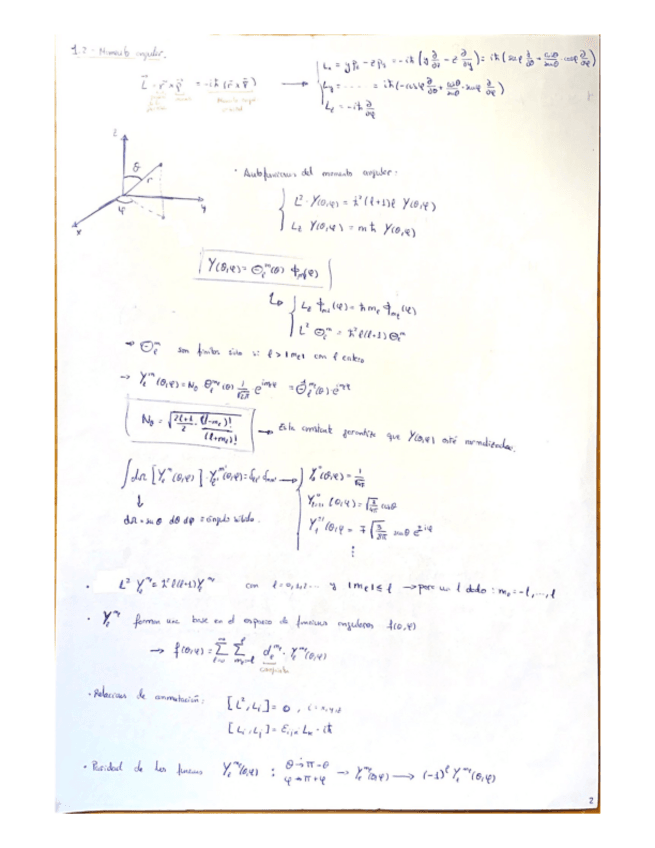 1.2 - Momento angular.
L⃗ = r⃗ × p⃗ = -iħ (r⃗ × ∇⃗) → { Lx = y pz - z py = -iħ (y ∂/∂z - z ∂/∂y) = iħ (senφ ∂/∂θ + cosθ/senθ · cosφ ∂/∂φ)
Ly = ...... = iħ (-cosφ ∂/∂θ + cosθ/senθ · senφ ∂/∂φ)
Lz = -iħ ∂/∂φ
z
θ
r
y
φ
x
· Autofunciones del momento angular:
{ L² · Y(θ,φ) = ħ² (l+1)l Y(θ,φ)
Lz Y(θ,φ) = mħ Y(θ,φ)
Y(θ,φ) = Θ_l^m(θ) ϕ_ml(φ)
↳ { Lz ϕ_ml(φ) = ħ m_l ϕ_ml(φ)
L² Θ_l^m = ħ² l(l+1) Θ_l^m
→ Θ_l^m son finitos solo si l > |m_l| con l entero
→ Y_l^m(θ,φ) = N_θ Θ_l^ml(θ) 1/√2π e^imφ = Θ̂_l^m(θ) · e^imφ
N_θ = √(2l+1)/2 · (l-m_l)!/(l+m_l)! → Esta constante garantiza que Y(θ,φ) esté normalizada.
∫dΩ [Y_l^m(θ,φ)] · Y_l'^m'(θ,φ) = δ_ll' δ_mm' → { Y_0^0(θ,φ) = 1/√4π
↓
dΩ = senθ dθ dφ = ángulo sólido.
(θ,φ) = √3/4π cosθ
(θ,φ = ∓ √3/8π senθ e^±iφ
⋮
· L² Y_l^ml = ħ² l(l+1) Y_l^ml con l = 0,1,... y |m_l| ≤ l → para un l dado: m_l = -l,...,l
· Y_l^ml forman una base en el espacio de funciones angulares f(θ,φ)
→ f(θ,φ) = Σ_l=0^∞ Σ_ml=-l^l d_l^ml · Y_l^ml(θ,φ)
· Relaciones de conmutación: [L², Li] = 0, i = x,y,z
[Li, Lj] = ε_ijk Lk · iħ
· Paridad de las funciones Y_l^ml(θ,φ) : θ → π - θ
φ → π + φ → Y_l^ml(θ,φ) → (-1)^l Y_l^ml(θ,φ)
2